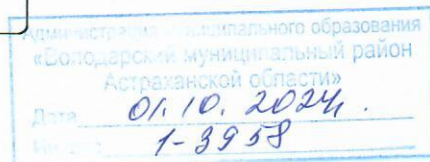 Администрация муниципального образования
«Володарский муниципальный район
Астраханской области»
Дата 01.10.2024г.
1-3958